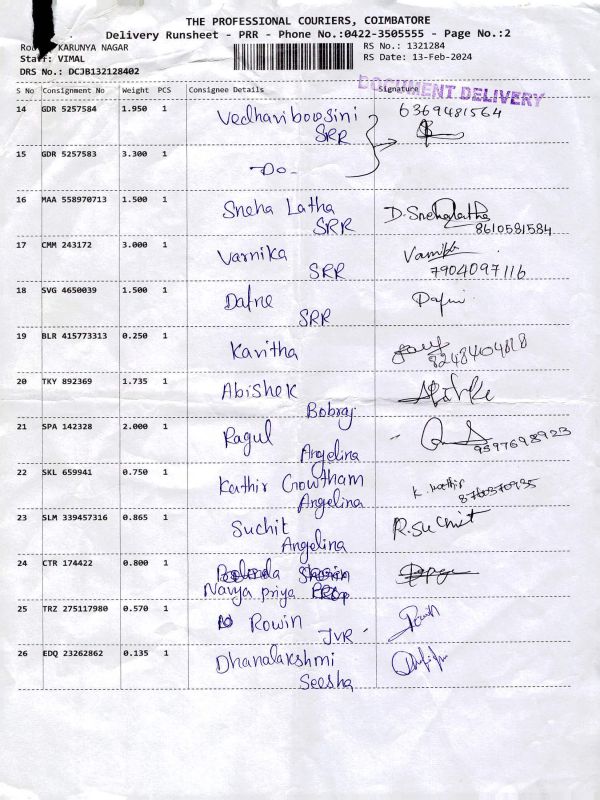 THE PROFESSIONAL COURIERS, COIMBATORE
Delivery Runsheet - PRR - Phone No.:0422-3505555 - Page No.:2
KARUNYA NAGAR RS No.: 1321284
Staff: VIMAL RS Date: 13-Feb-2024
DRS No.: DCJB132128402
DOCUMENT DELIVERY
S No Consignment No Weight PCS Consignee Details Signature
14 GDR 5257584 1.950 1 Vedhavibowsini 6369481564
SRR
15 GDR 5257583 3.300 1 -Do-
16 MAA 558970713 1.500 1 Sneha Latha D.Snehalatha
SRR 8610581584
17 CMM 243172 3.000 1 Varnika
SRR 7904097116
18 SVG 4650039 1.500 1 Dafne
SRR
19 BLR 415773313 0.250 1 Kavitha
20 TKY 892369 1.735 1 Abishek
Bobraj
21 SPA 142328 2.000 1 Ragul
Angelina 9597698923
22 SKL 659941 0.750 1 Kathir Gowtham K. Kathir
Angelina
23 SLM 339457316 0.865 1 Suchit R.Suchit
Angelina
24 CTR 174422 0.800 1
Navya priya
25 TRZ 275117980 0.570 1 Rowin
JVR
26 EDQ 23262862 0.135 1 Dhanalakshmi
Seesha